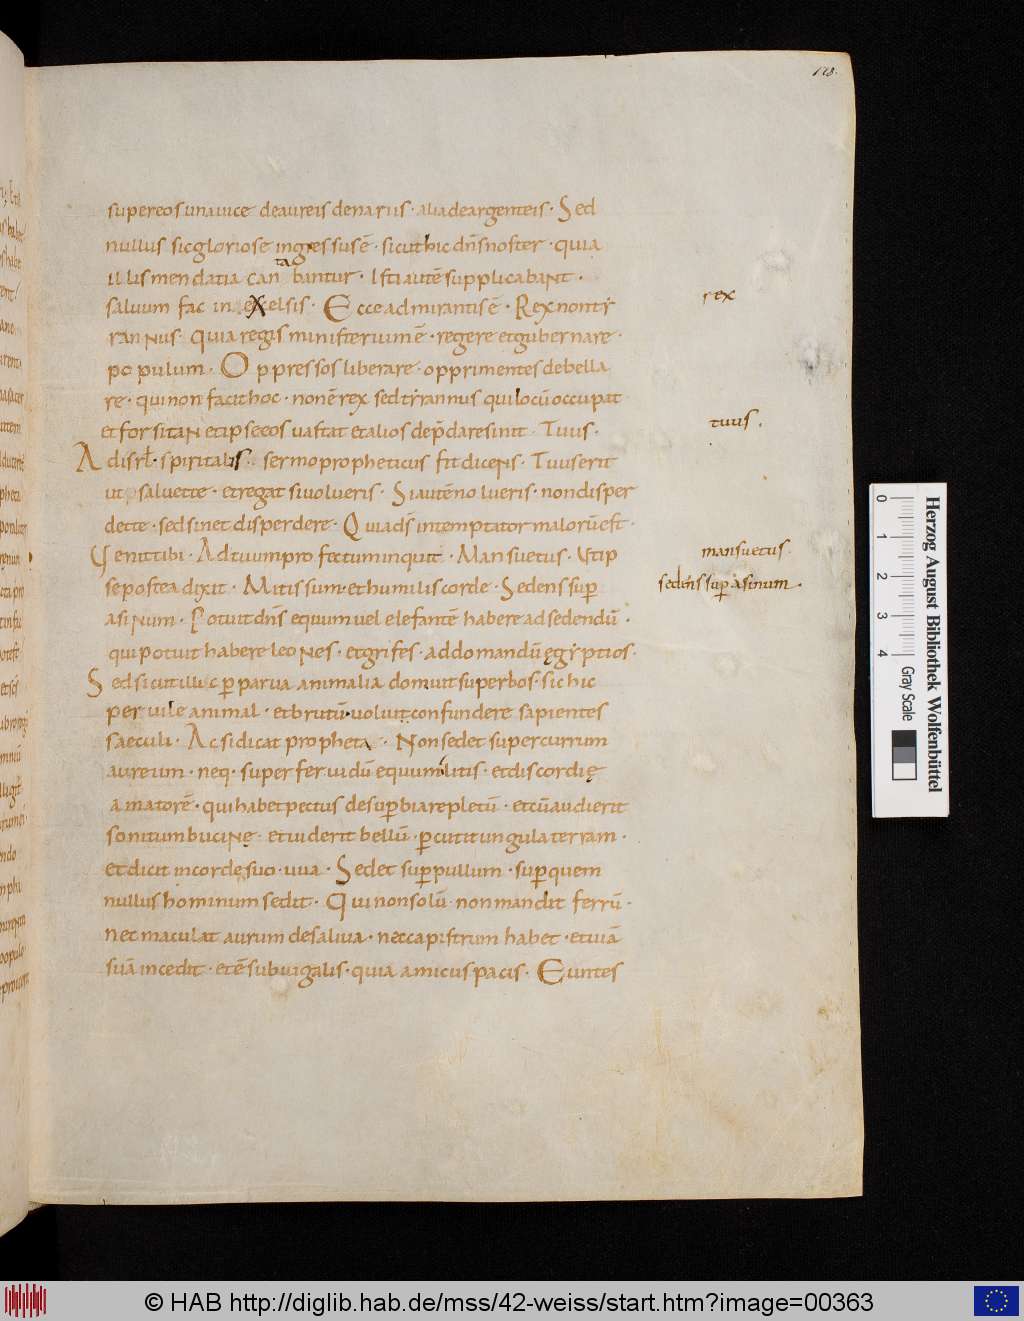 178.
super eos una vice de aureis denariis · alia de argenteis · Sed
nullus sic gloriose ingressus ē · sicut hic dn̄s noster · quia
illis mendatia cantabantur · Isti autē supplicabant ·
salvum fac in exelsis · Ecce admirantis ē · Rex non ty
rannus · quia regis ministerium ē · regere et gubernare ·
populum · Oppressos liberare · opprimentes debella
re · qui non facit hoc · non ē rex sed tyrannus qui locū occupat
et forsitan et ipse eos vastat et alios dep̄dare sinit · Tuus ·
Ad isrl · spiritalis · sermo propheticus fit dicens · Tuus erit
ut salvet te · et regat si volueris · Si autē nolueris · non disper
det te · sed sinet disperdere · Quia ds̄ intemptator malorū est ·
Venit tibi · Ad tuum profectum inquit · Mansuetus · Ut ip
se postea dixit · Mitis sum · et humilis corde · Sedens sup
asinum · Potuit dn̄s equum vel elefantē habere ad sedendū ·
qui potuit habere leones · et grifes · ad domandū ęgyptios ·
Sed sicut illuc p parva animalia domuit superbos · sic hic
per vile animal · et brutū · voluit confundere sapientes
saeculi · Ac si dicat propheta · Non sedet super currum
aureum · neq · super fervidū equum litis · et discordię
amatorē · qui habet pectus de supbia repletū · et cū audierit
sonitum bucinę · et viderit bellū · pcutit ungula terram ·
et dicit in corde suo · vua · Sedet sup pullum · sup quem
nullus hominum sedit · Qui non solū non mandit ferrū ·
nec maculat aurum de saliva · nec capistrum habet · et viā
suā incedit · et ē subiugalis · quia amicus pacis · Euntes
rex
tuus .
mansuetus ·
sedens sup asinum ·
0 1 2 3 4
Gray Scale
Herzog August Bibliothek Wolfenbüttel
© HAB http://diglib.hab.de/mss/42-weiss/start.htm?image=00363